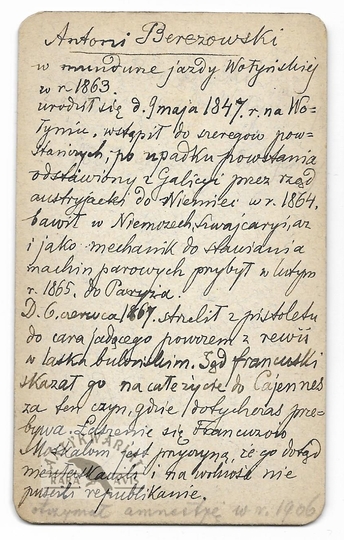 Antoni Berezowski
w mundurze jazdy Wołyńskiej
w r. 1863.
urodził się d. 9 maja 1847. r. na Wo=
łyniu, wstąpił do szeregów pow=
stańczych; po upadku powstania
odstawiony z Galicyi przez rząd
austryjacki do Niemiec w r. 1864.
bawił w Niemczech, Szwajcaryi, aż
i jako mechanik do stawiania
machin parowych przybył w lutym
r. 1865. do Paryża.
D. 6. czerwca 1867. strzelił z pistoletu
do cara jadącego powozem z rewii
w lasku bulońskim. Sąd francuski
skazał go na całe życie do Cajennes
za ten czyn, gdzie dotychczas prze=
bywa. Łaszenie się Francuzów
Moskalom jest przyczyną, że go dotąd
nie na wolność nie
puścili republikanie.
otrzymał amnestję w r. 1906